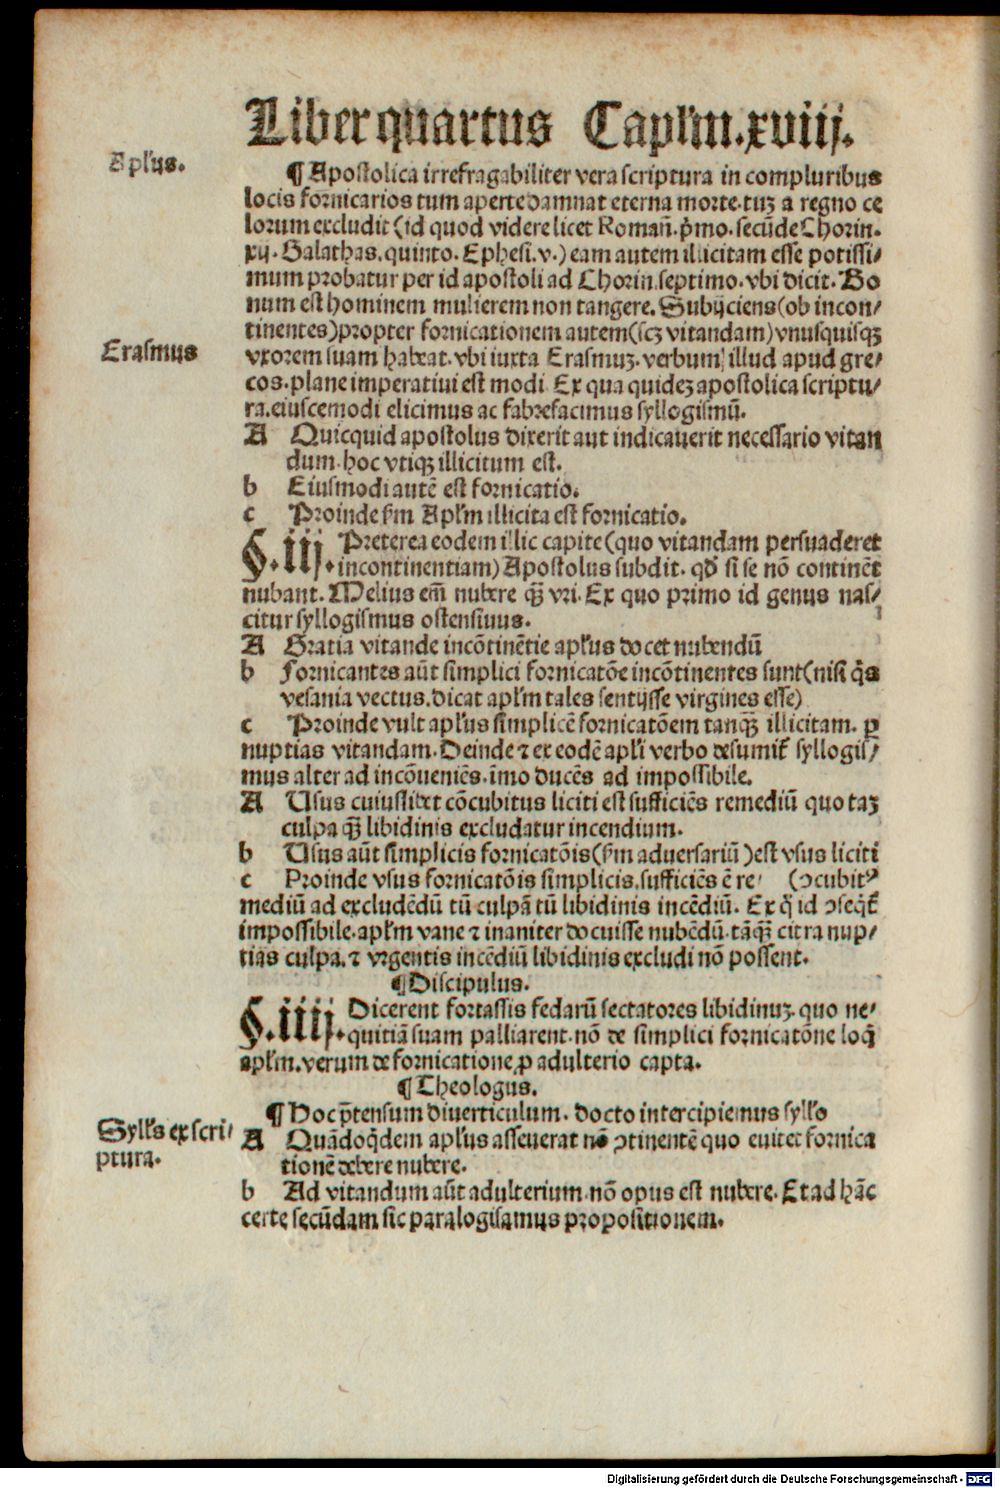 Liber quartus Capl'm.xviij.
Apl'us.
¶ Apostolica irrefragabiliter vera scriptura in compluribus
locis fornicarios tum aperte damnat eterna morte.tuz a regno ce
lorum excludit (id quod videre licet Romañ.p̄mo.secūde Chorin.
xij.Galathas.quinto.Ephesi.v.) eam autem illicitam esse potissi/
mum probatur per id apostoli ad Chorin.septimo.vbi dicit.Bo
num est hominem mulierem non tangere.Subijciens(ob incon/
tinentes)propter fornicationem autem(scz vitandam)vnusquisqz
Erasmus
vxorem suam habeat.vbi iuxta Erasmuz.verbum illud apud gre/
cos.plane imperativi est modi Ex qua quidez apostolica scriptu/
ra.eiuscemodi elicimus ac fabrefacimus syllogismū.
A Quicquid apostolus dixerit aut indicauerit necessario vitan
dum.hoc vtiqz illicitum est.
b Eiusmodi autē est fornicatio.
c Proinde fm Apl'm illicita est fornicatio.
§.iij. Preterea eodem illic capite(quo vitandam persuaderet
incontinentiam)Apostolus subdit.qđ si se nō continēt
nubant.Melius em̄ nubere qz̄ vri.Ex quo primo id genus nas/
citur syllogismus ostensiuus.
A Gratia vitande incōtinētie apl'us docet nubendū
b Fornicantes aūt simplici fornicatōe incōtinentes sunt(nisi q̄s
vesania vectus.dicat apl'm tales sentijsse virgines esse)
c Proinde vult apl'us simplicē fornicatōem tanqz̄ illicitam.ꝑ
nuptias vitandam.Deinde ⁊ ex eodē apl'i verbo desumit͛ syllogis/
mus alter ad incōueniēs.īmo ducēs ad impossibile.
A Usus cuiuslibet cōcubitus liciti est sufficiēs remediū quo taz
culpa qz̄ libidinis excludatur incendium.
b Usus aūt simplicis fornicatōis(fm aduersariū)est vsus liciti
c Proinde vsus fornicatōis simplicis.sufficiēs ē re/ (ↄcubitꝰ
mediū ad excludēdū tū culpā tū libidinis incēdiū.Ex q̄ id ↄseq̄t͛
impossibile.apl'm vane ⁊ inaniter docuisse nubēdū.tāqz̄ citra nup/
tias culpa.⁊ vrgentis incēdiū libidinis excludi nō possent.
¶ Discipulus.
§.iiij. Dicerent fortassis fedarū sectatores libidinuz.quo ne/
quitiā suam palliarent.nō de simplici fornicatōne loq̄
apl'm.verum de fornicatione ꝓ adulterio capta.
¶ Theologus.
¶ Hoc p̄tensum diuerticulum.docto intercipiemus syllo
Syll's ex scri/
ptura.
A Quādoq̄dem apl'us asseuerat nō ↄtinentē quo euitet fornica
tionē debere nubere.
b Ad vitandum aūt adulterium.nō opus est nubere.Et ad hāc
certe secūdam sic paralogisamus propositionem.
Digitalisierung gefördert durch die Deutsche Forschungsgemeinschaft - DFG